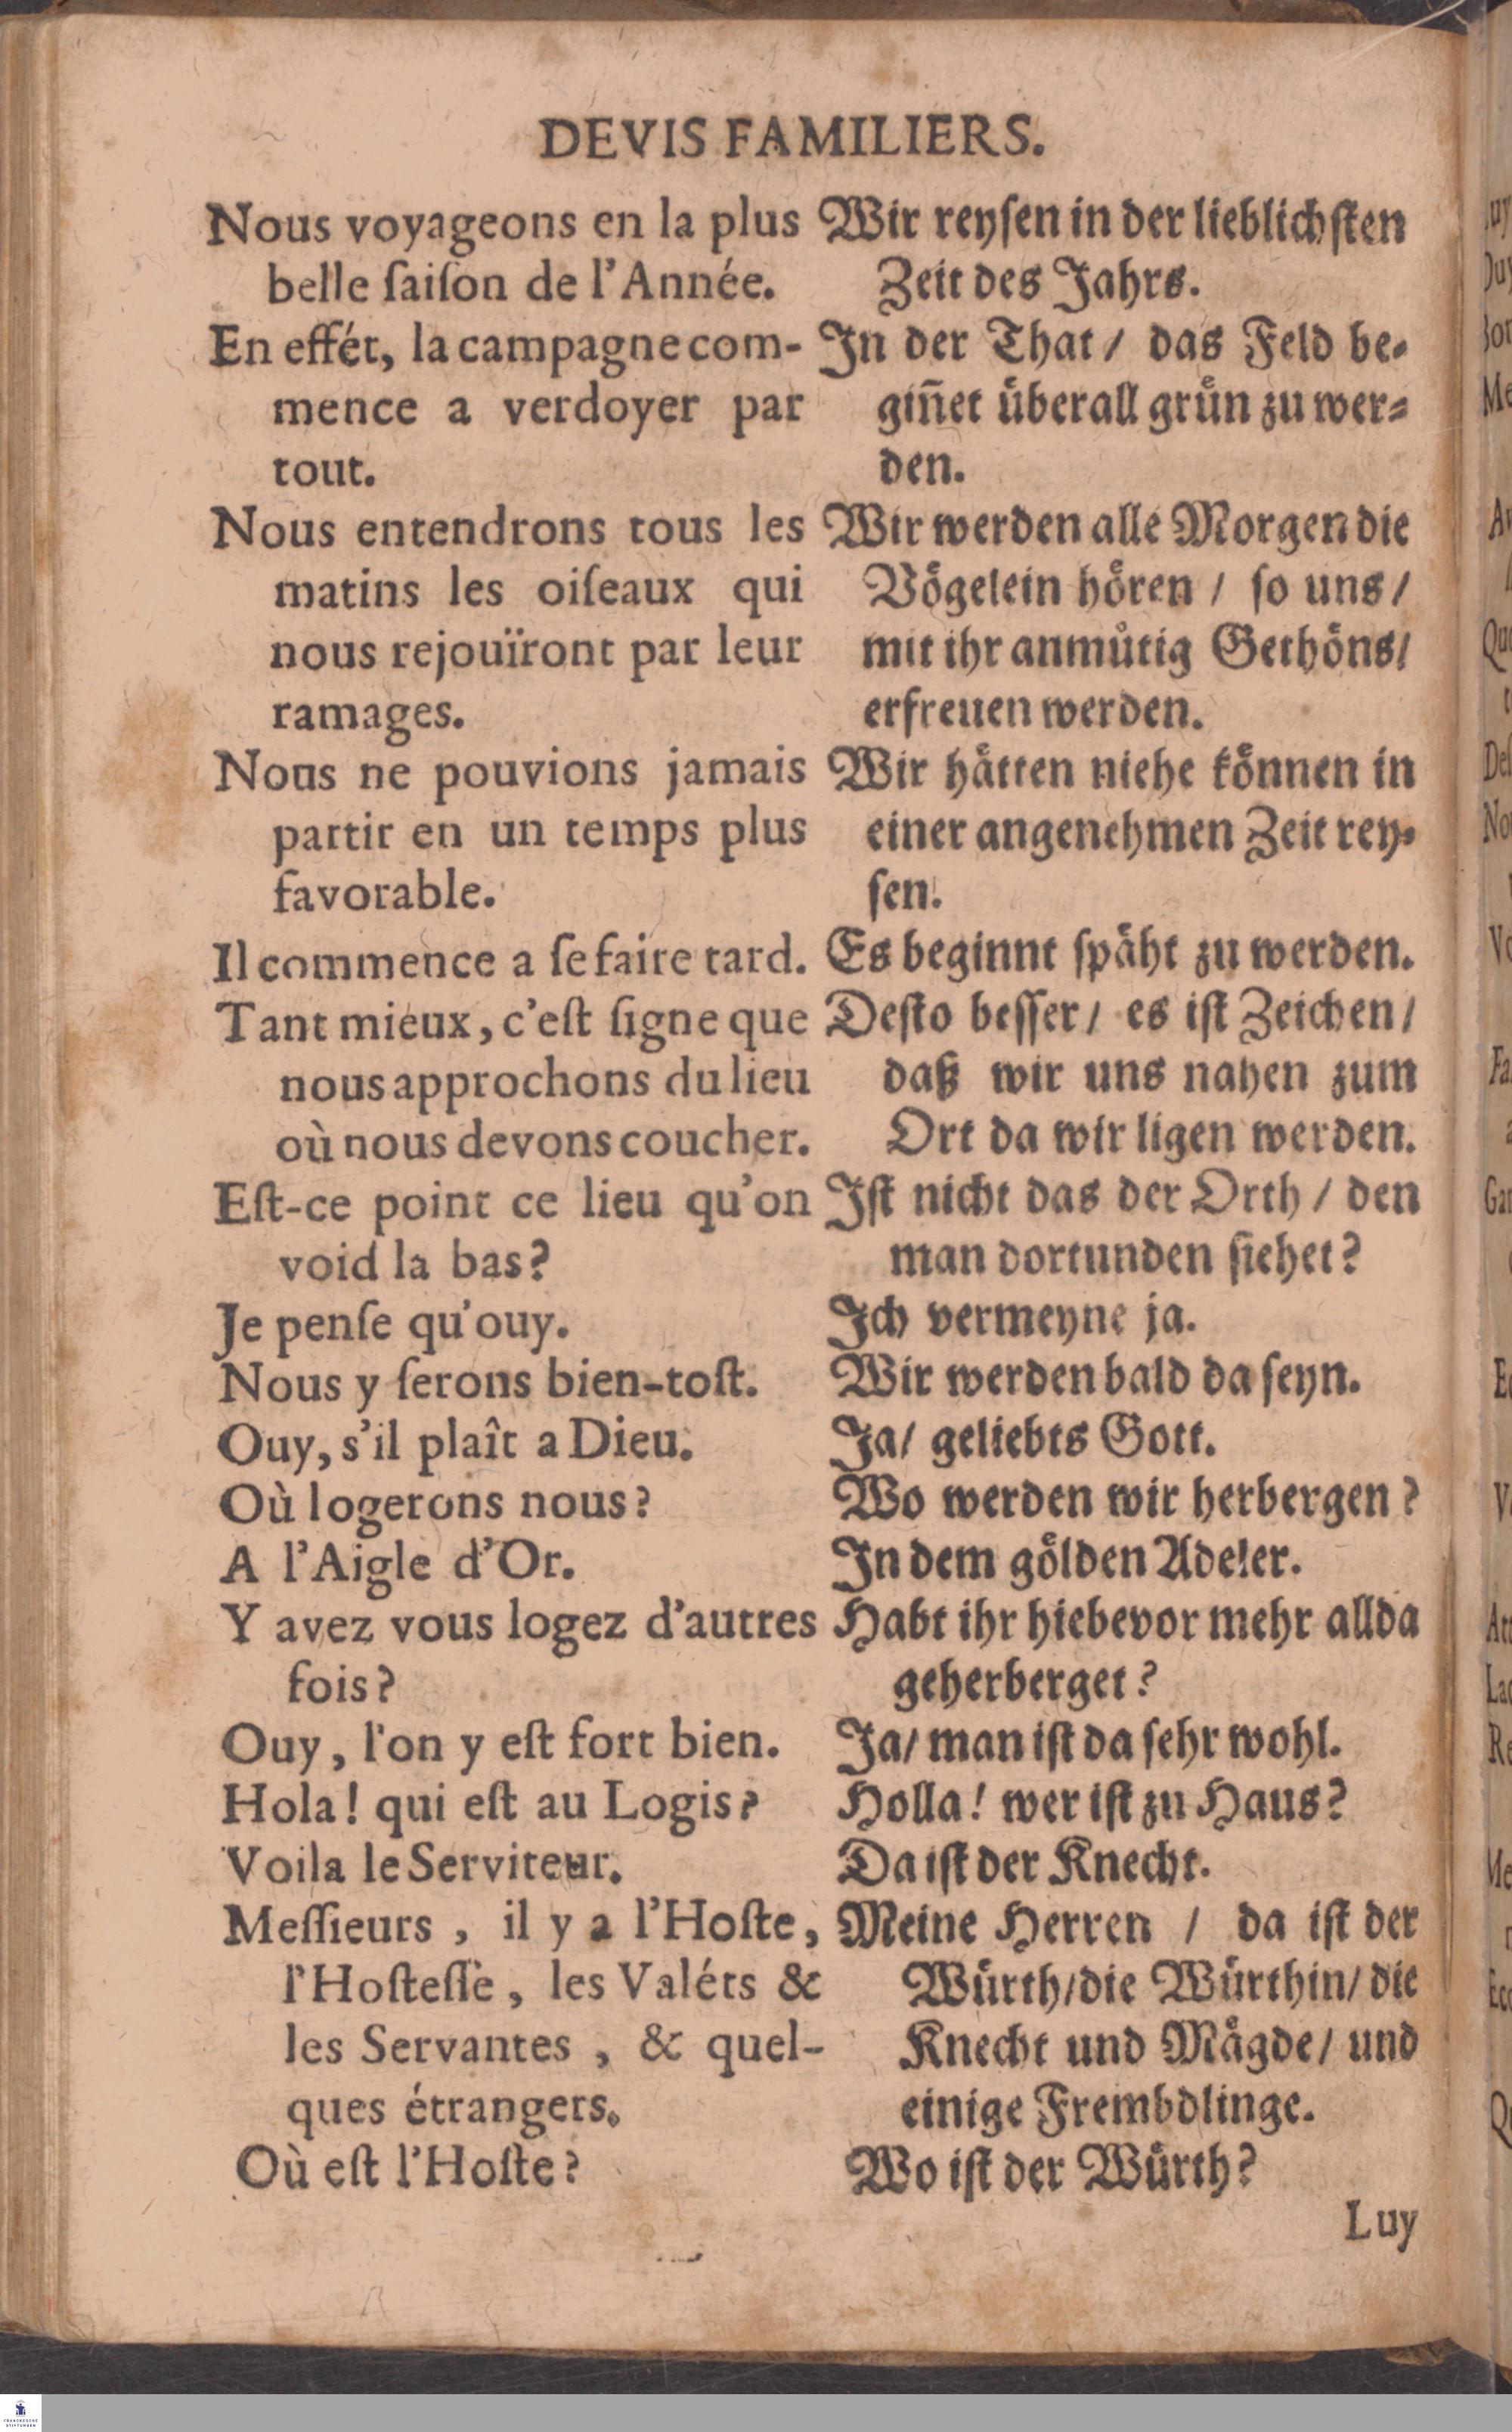 DEVIS FAMILIERS.
Nous voyageons en la plus
belle ſaiſon de l'Année.
En effét, la campagne com-
mence a verdoyer par
tout.
Nous entendrons tous les
matins les oiſeaux qui
nous rejouïront par leur
ramages.
Nous ne pouvions jamais
partir en un temps plus
favorable.
Il commence a ſe faire tard.
Tant mieux, c'eſt ſigne que
nous approchons du lieu
où nous devons coucher.
Eſt-ce point ce lieu qu'on
void la bas?
Je penſe qu'ouy.
Nous y ſerons bien-toſt.
Ouy, s'il plaît a Dieu.
Où logerons nous?
A l'Aigle d'Or.
Y avez vous logez d'autres
fois?
Ouy, l'on y eſt fort bien.
Hola! qui eſt au Logis?
Voila le Serviteur.
Meſſieurs, il y a l'Hoſte,
l'Hoſteſſe, les Valéts &
les Servantes, & quel-
ques étrangers.
Où eſt l'Hoſte?
Wir reyſen in der lieblichſten
Zeit des Jahrs.
In der That / das Feld be-
giñet uͤberall gruͤn zu wer-
den.
Wir werden alle Morgen die
Voͤgelein hoͤren / ſo uns /
mit ihr anmuͤtig Gethoͤns /
erfreuen werden.
Wir haͤtten niehe koͤnnen in
einer angenehmen Zeit rey-
ſen.
Es beginnt ſpaͤht zu werden.
Deſto beſſer / es iſt Zeichen /
daß wir uns nahen zum
Ort da wir ligen werden.
Iſt nicht das der Orth / den
man dortunden ſiehet?
Ich vermeyne ja.
Wir werden bald da ſeyn.
Ja / geliebts Gott.
Wo werden wir herbergen?
In dem goͤlden Adeler.
Habt ihr hiebevor mehr allda
geherberget?
Ja / man iſt da ſehr wohl.
Holla! wer iſt zu Haus?
Da iſt der Knecht.
Meine Herren / da iſt der
Wuͤrth / die Wuͤrthin / die
Knecht und Maͤgde / und
einige Frembdlinge.
Wo iſt der Wuͤrth?
Luy